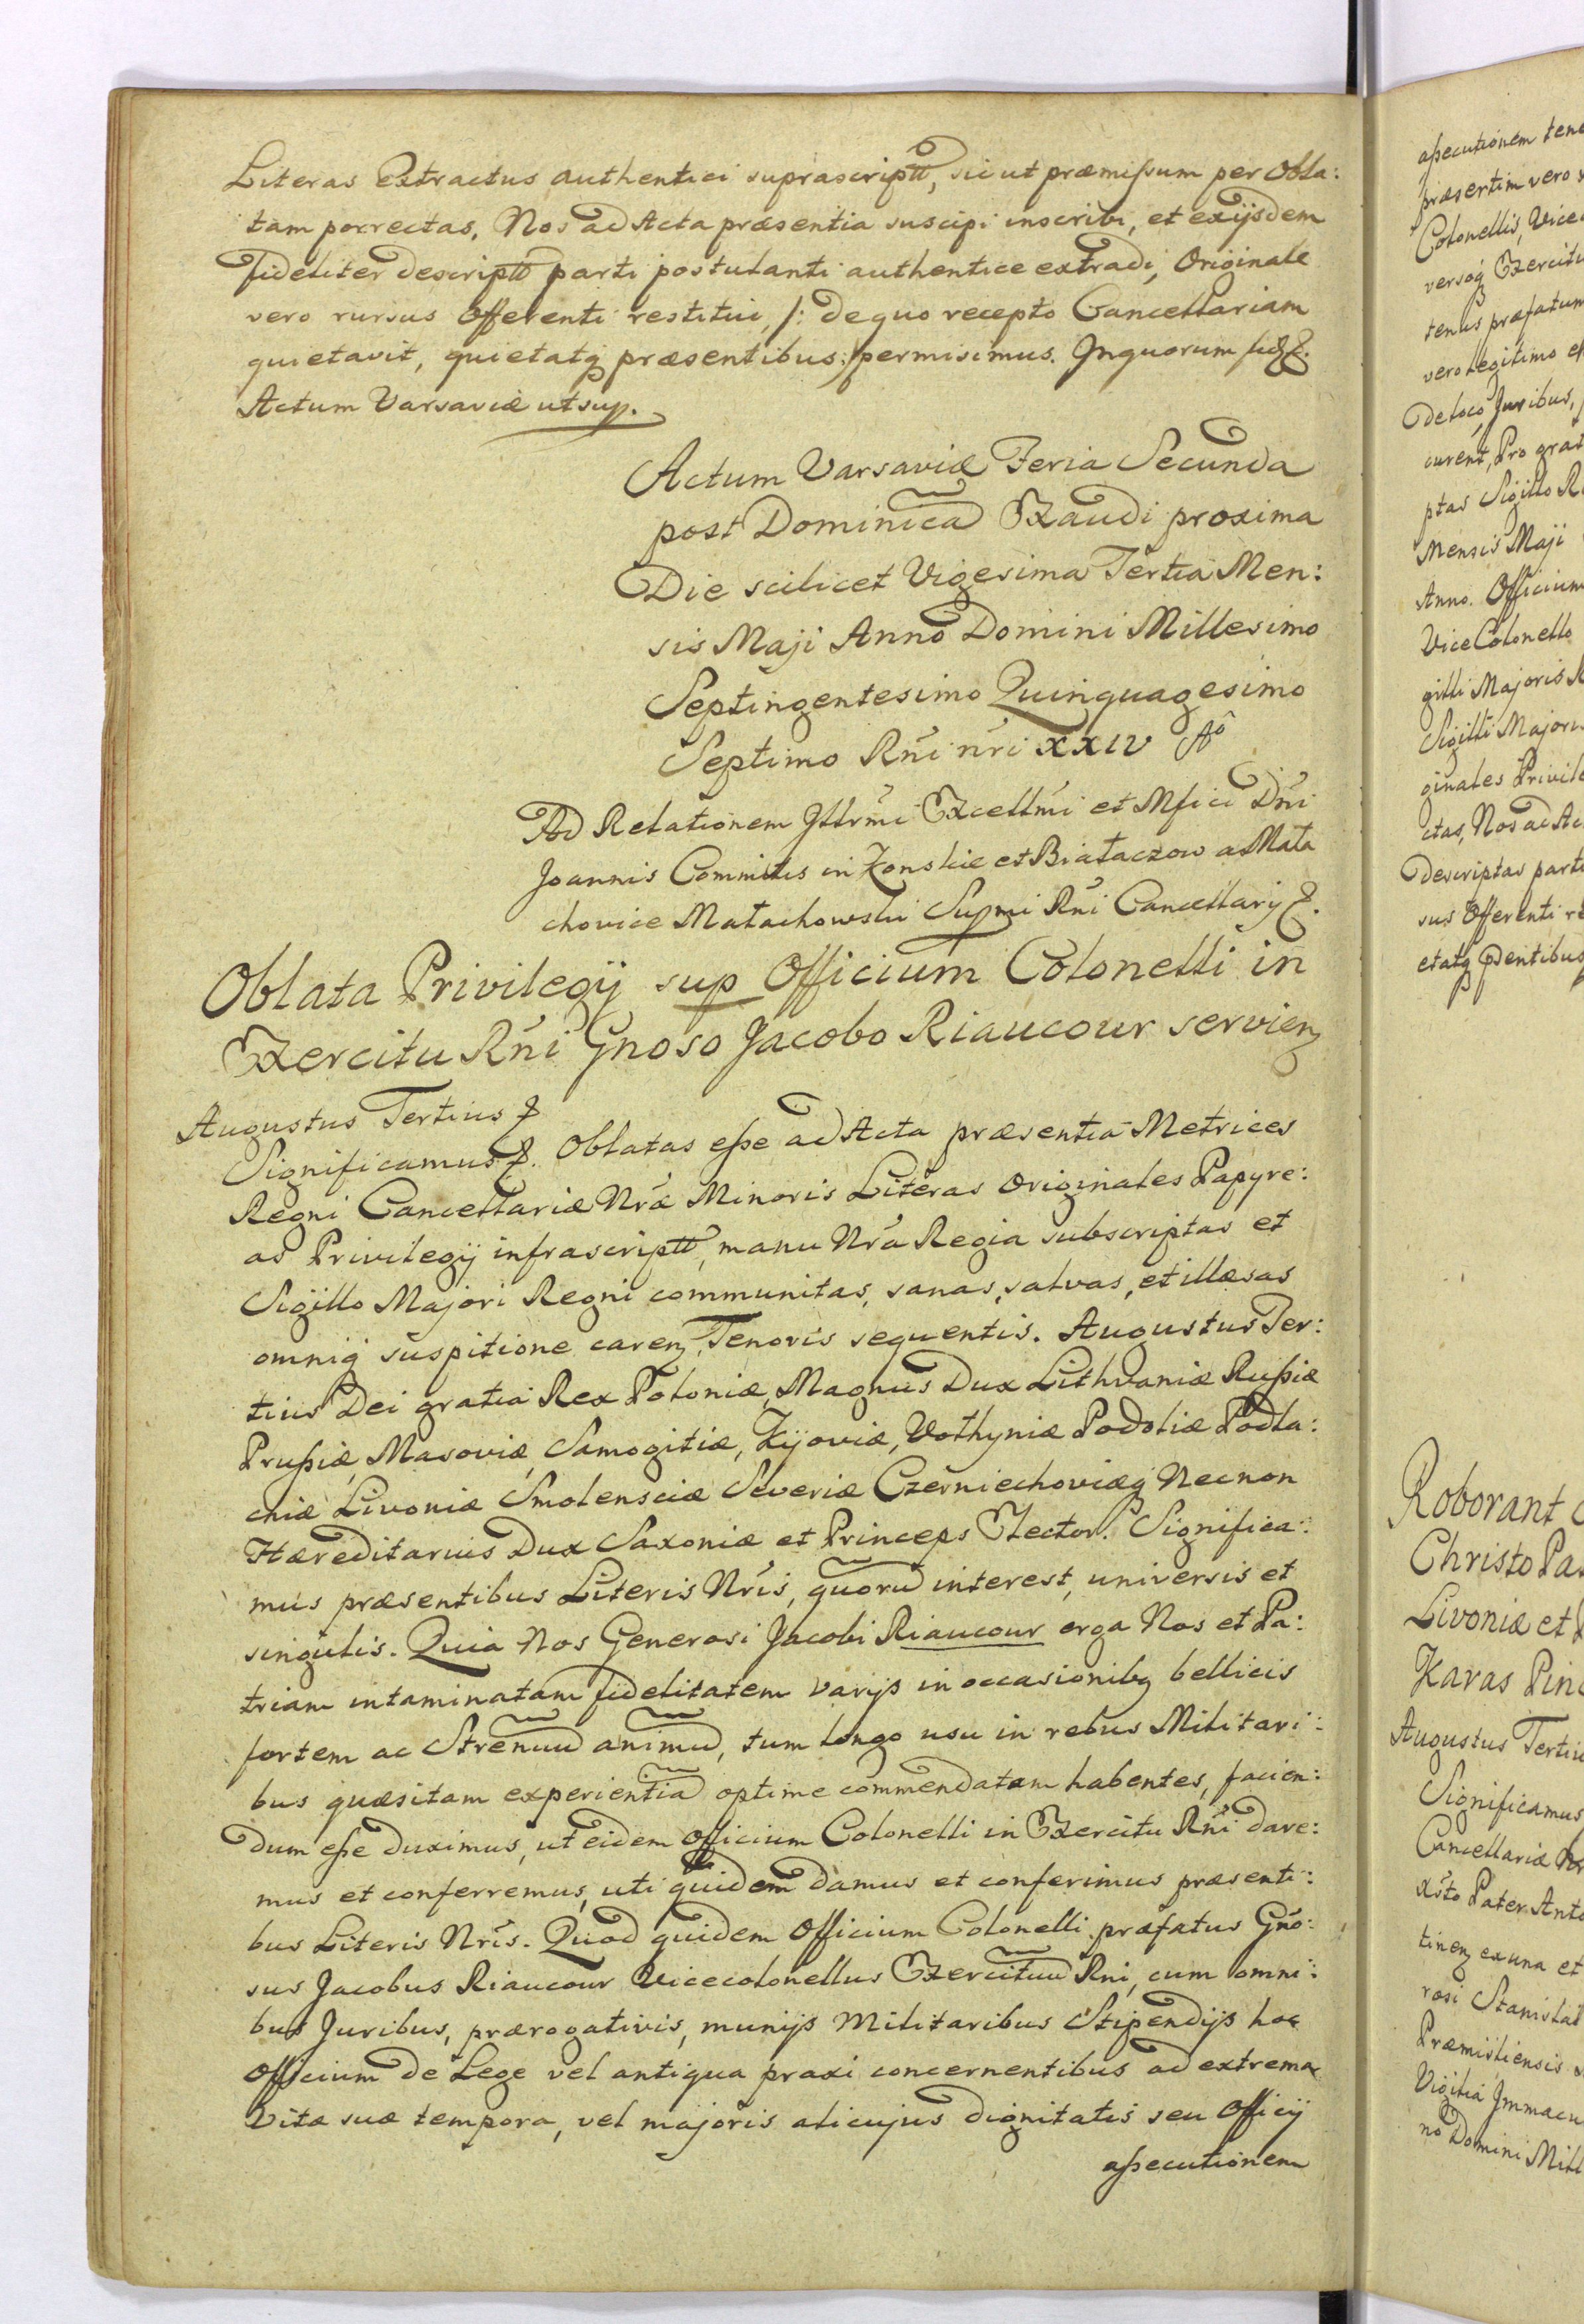 Literas Extractus authentici suprascriptt, sicut præmissum per Obla:
tam porrectas, Nos ad Acta præsentia suscipi inscribi, et exijsdem
fideliter descriptt parti postulanti authentice extradi, Originale
vero rursus Offerenti restitui, /: de quo recepto Cancellariam
quietavit, quietatq præsentibus :/ permisimus. In quorum fid &.
Actum Varsaviæ ut sup.
Actum Varsaviæ Feria Secunda
post Dominicã Exaudi proxima
Die scilicet Vigesima Tertia Men:
sis Maji Anno Domini Millesimo
Septingentesimo Quinquagesimo
Septimo Rńi nri XXIV Aô
Ad Relationem Illrmi Excellmi et Mfici Dńi
Joannis Commitis in Konskie et Białaczow a Mała
chovice Małachowski Supmi Rńi Cancellarij &.
Oblata Privilegij sup Officium Colonelli in
Exercitu Rńi Gnoso Jacobo Riaucour servienz
Augustus Tertius &
Significamus &. Oblatas esse ad Acta præsentia Metrices
Regni Cancellariæ Nræ Minoris Literas Originales Papyre:
as Privilegij infrascriptt, manu Nra Regia subscriptas et
Sigillo Majori Regni communitas, sanas, salvas, et illæsas
omniq suspitione carenz, Tenoris sequentis. Augustus Ter:
tius Dei gratia Rex Poloniæ, Magnus Dux Lithvaniæ Russiæ
Prussiæ, Masoviæ, Samogitiæ, Kijoviæ, Volhyniæ Podoliæ Podla:
chiæ Livoniæ Smolensciæ Severiæ Czerniechoviæq Necnon
Hæreditarius Dux Saxoniæ et Princeps Elector. Significa:
mus præsentibus Literis Nris, quorũ interest, universis et
singulis. Quia Nos Generosi Jacobi Riaucour erga Nos et Pa:
triam intaminatam fidelitatem varijs in occasionibq bellicis
fortem ac Strenuũ animũ, tum longo usu in rebus Militari:
bus quæsitam experientiã optime commendatam habentes, facien:
dum esse duximus, ut eidem Officium Colonelli in Exercitu Rńi dare:
mus et conferremus, uti quidem damus et conferimus præsenti:
bus Literis Nris. Quod quidem Officium Colonelli præfatus Gńo:
sus Jacobus Riaucour Vicecolonellus Exercituũ Rńi, cum omni:
bus Juribus, prærogativis, munijs Militaribus Stipendijs hoc
Officium de Lege vel antiqua praxi concernentibus ad extrema
Vitæ suæ tempora, vel majoris alicujus dignitatis seu Officij
assecutionem
assecutionem
præsertim vero
Colonellis, Vice
versoq Exercitu
tenus præfatum
vero legitimo
De loco, Juribus,
curent, Pro
ptas Sigillo
Mensis Maji
Anno. Officium
Vice Colonello
gilli Majoris
Sigilli Majoris
ginales
ctas, Nos ad
descriptas
sus Offerenti
Roborant
Christo
Livoniæ et
Karas
Augustus
Significamus
Cancellariæ
Xsto Pater
tinenz ex una et
rosi
Præmisliensis
Vigilia
no Domini